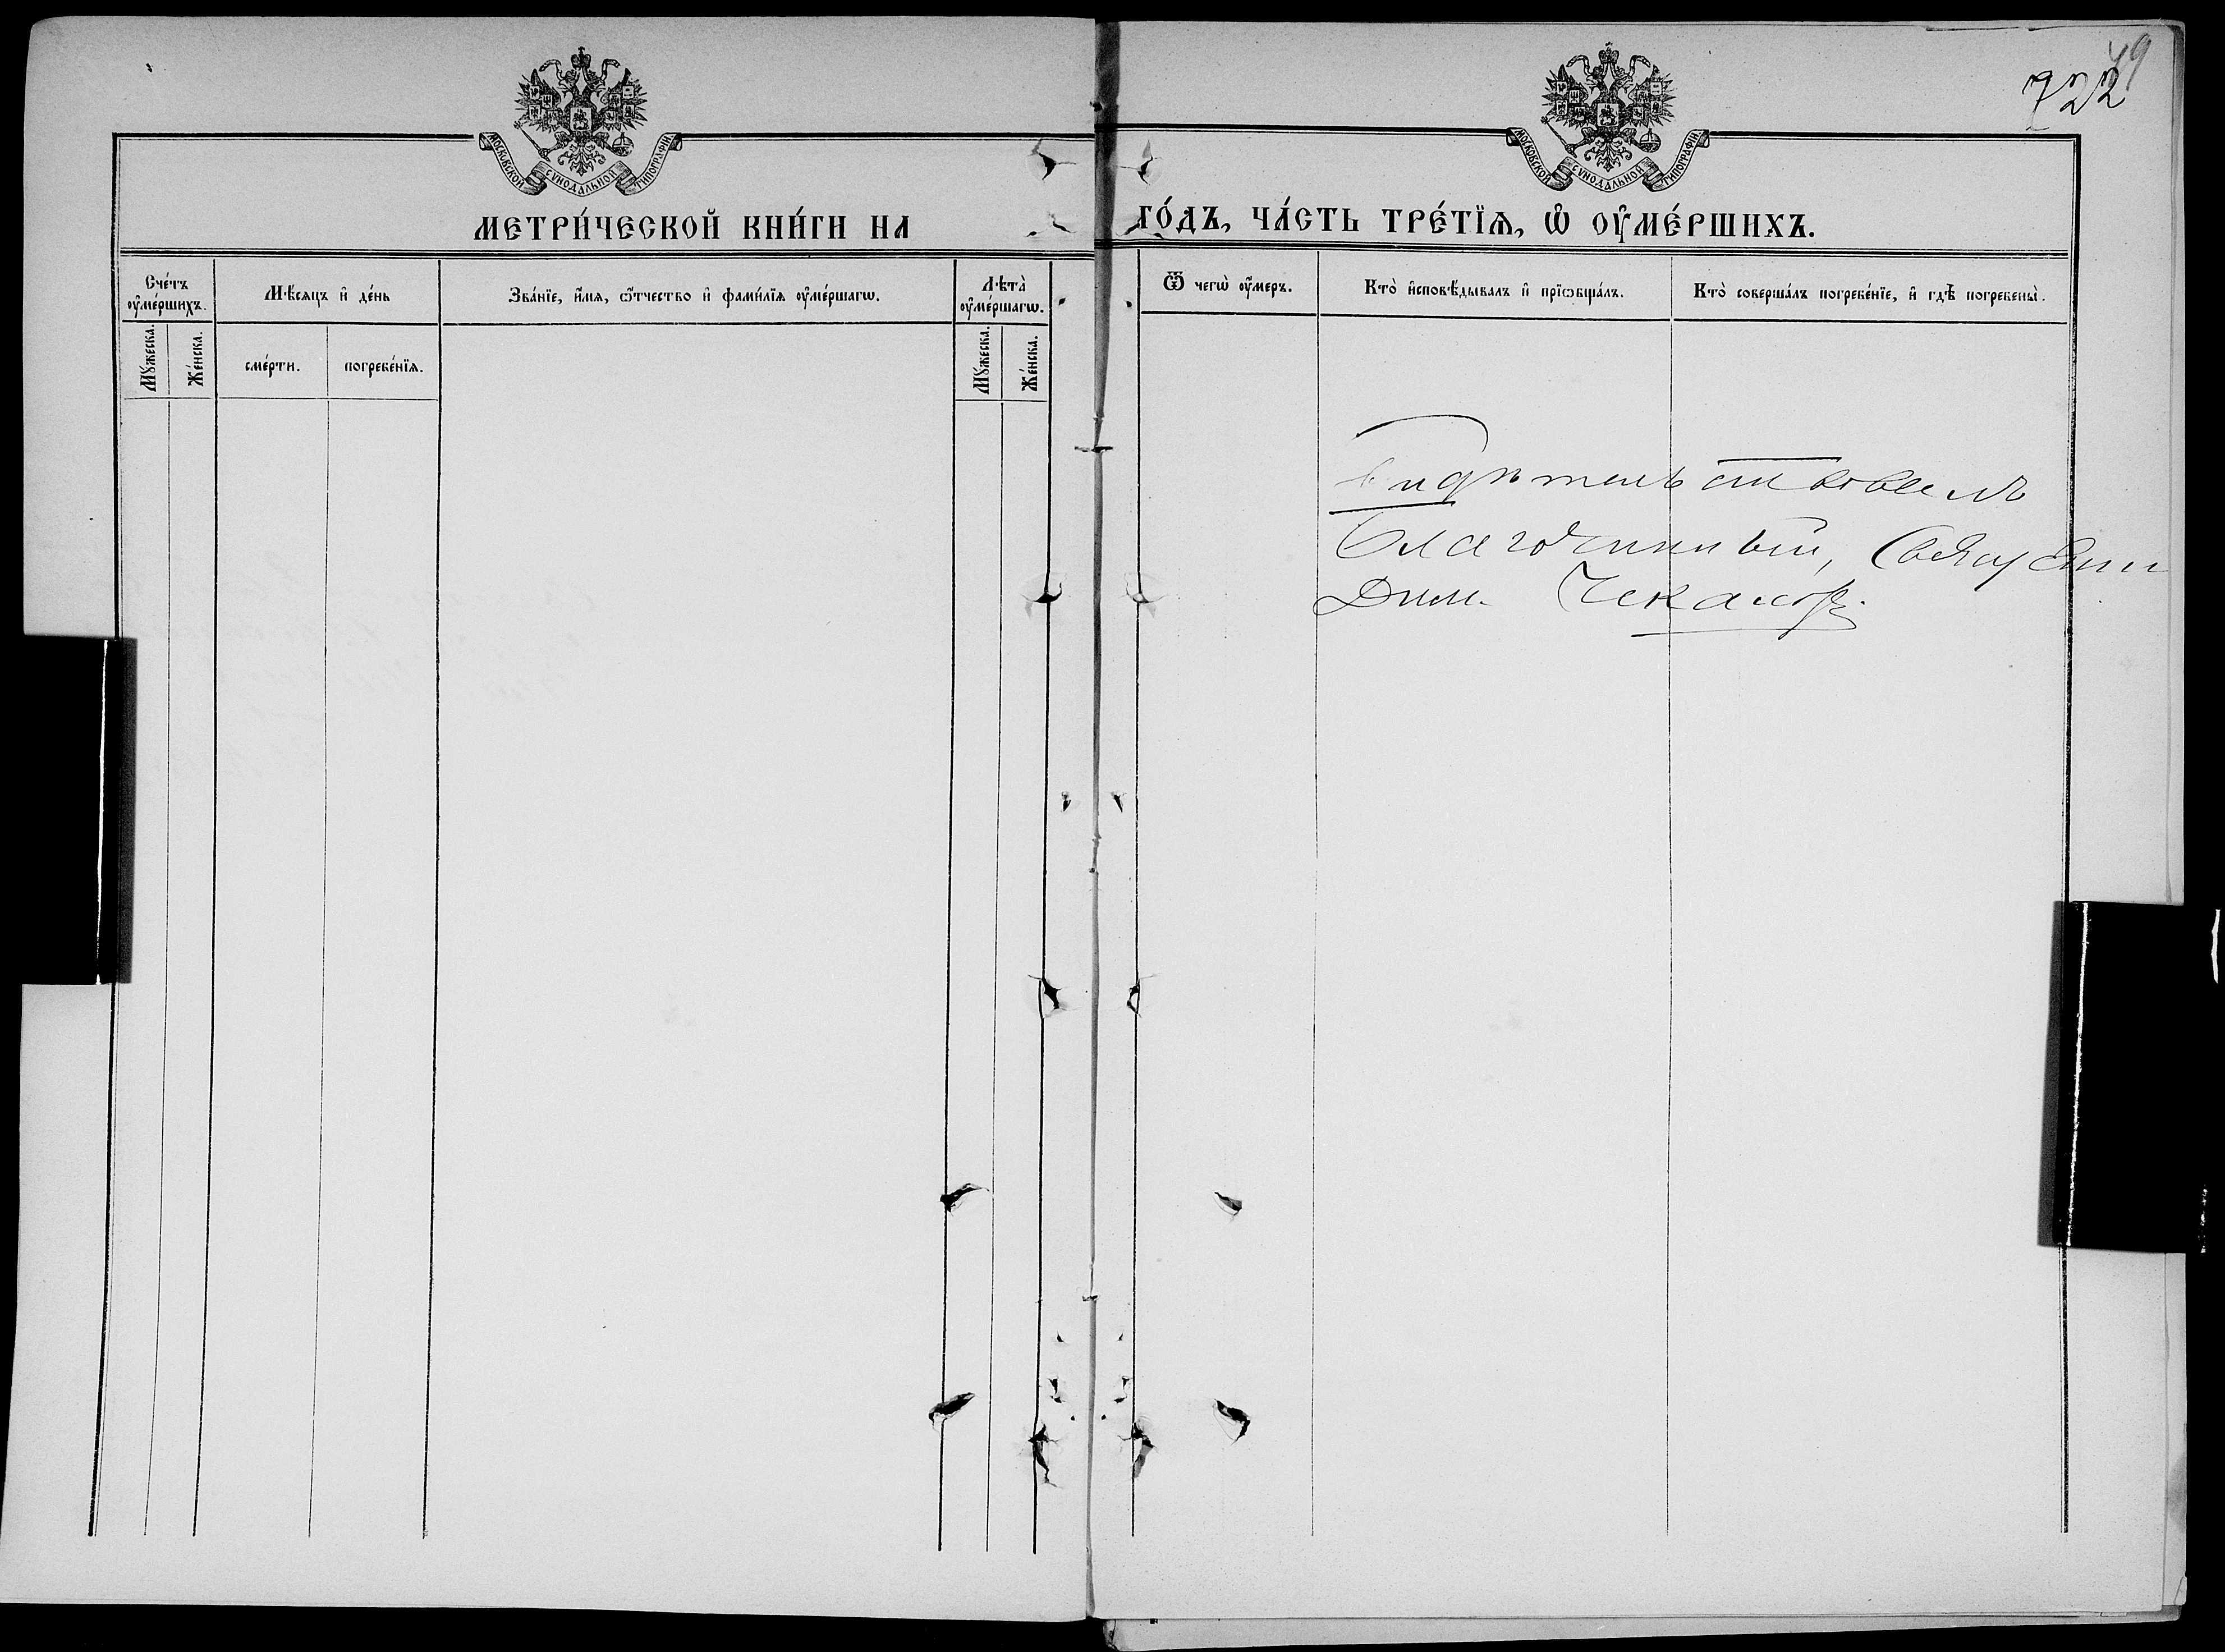 49
722
МОСКОВСКОЙ СѴНОДАЛЬНОЙ ТИПОГРАФІИ
МОСКОВСКОЙ СѴНОДАЛЬНОЙ ТИПОГРАФІИ
МЕТРИ́ЧЕСКОЙ КНИ́ГИ НА ГО́ДЪ, ЧА́СТЬ ТРЕ́ТЇѦ, Ѡ҆ ОУ҆МЕ́РШИХЪ.
Сче́тъ оу҆ме́ршихъ.
Мѣ́сяцъ и҆ де́нь
Зва́нїе, и҆́мѧ, ѻ҆́тчество и҆ фами́лїѧ оу҆ме́ршагѡ.
Лѣта̀ оу҆ме́ршагѡ.
Ѿ чегѡ̀ оу҆́меръ.
Кто̀ и҆сповѣ́дывалъ и҆ прїѡбща́лъ.
Кто̀ соверша́лъ погребе́нїе, и҆ гдѣ̀ погребены̀.
Мꙋ́жеска.
Же́нска.
сме́рти.
погребе́нїѧ.
Мꙋ́жеска.
Же́нска.
Свидѣтельствовалъ
Благочинный, Священ
Дим. Чекановъ